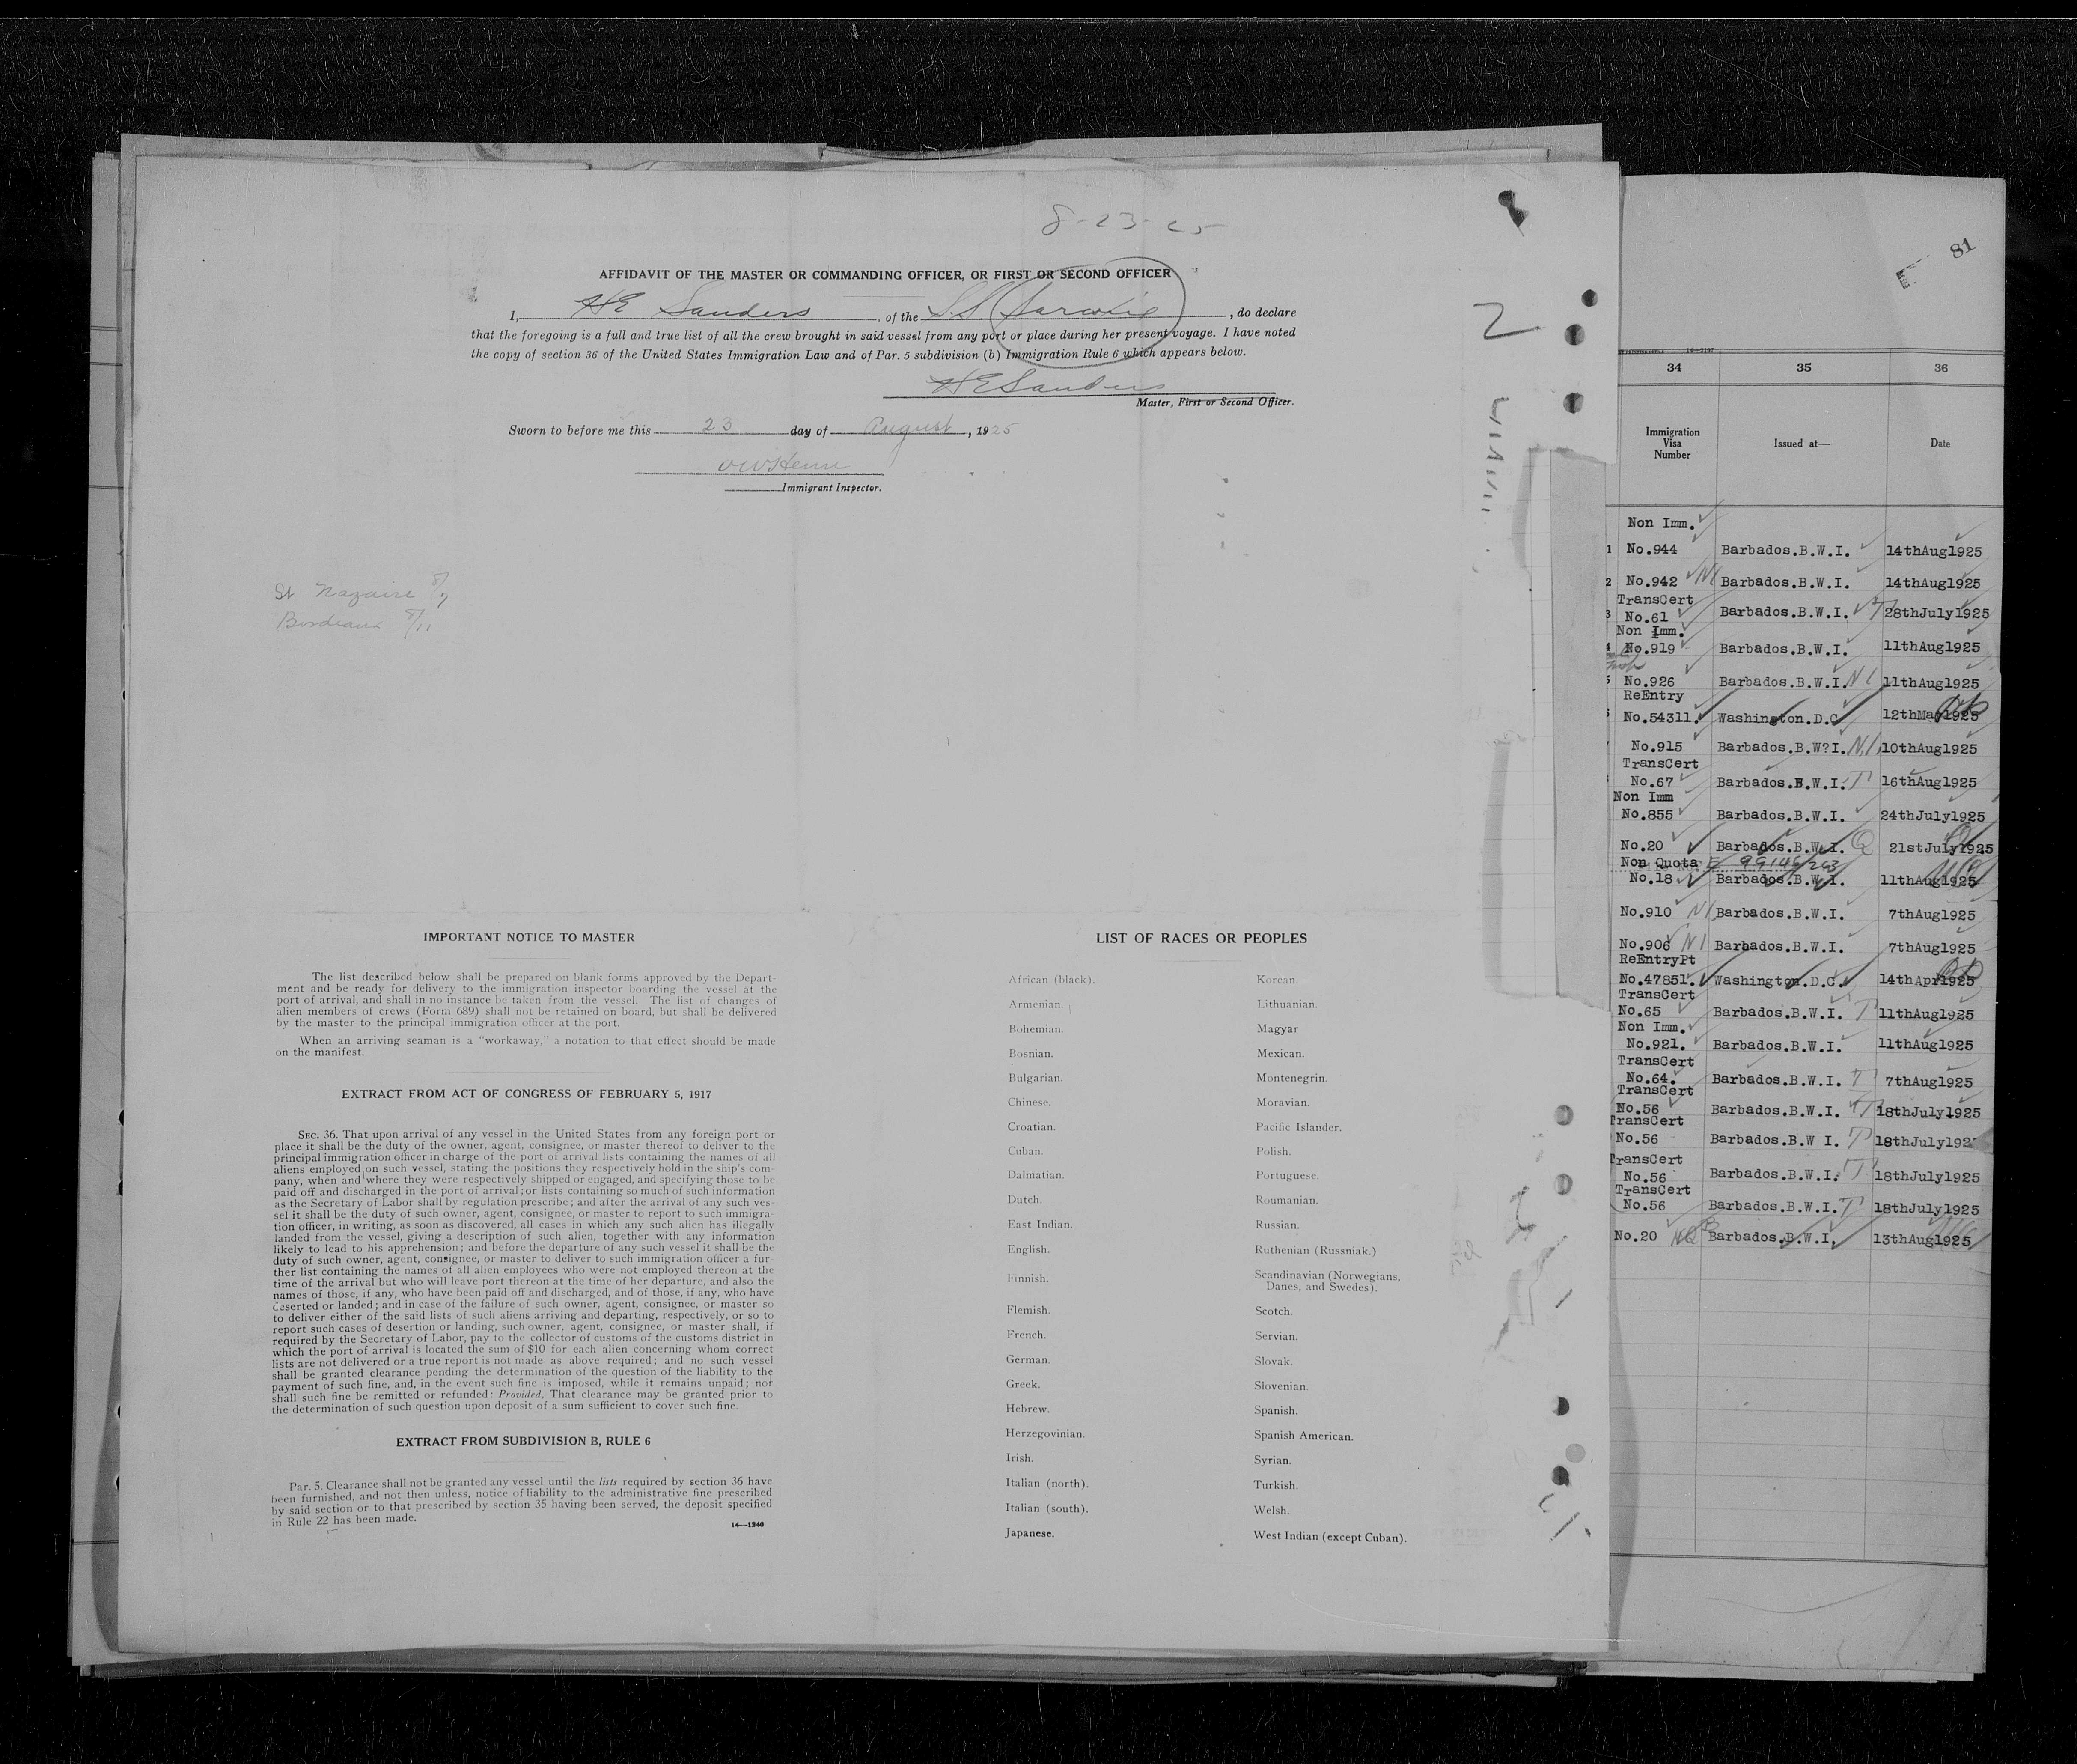 8-23-25
AFFIDAVIT OF THE MASTER OR COMMANDING OFFICER, OR FIRST OR SECOND OFFICER
I, HE Sanders, of the S.S., do declare
that the foregoing is a full and true list of all the crew brought in said vessel from any port or place during her present voyage. I have noted
the copy of section 36 of the United States Immigration Law and of Par. 5 subdivision (b) Immigration Rule 6 which appears below.
HE Sanders
Master, First or Second Officer.
Sworn to before me this 23 day of August, 1925
Immigrant Inspector.
St Nazaire 8/7
Bordeaux 8/11
2
IMPORTANT NOTICE TO MASTER
The list described below shall be prepared on blank forms approved by the Depart-
ment and be ready for delivery to the immigration inspector boarding the vessel at the
port of arrival, and shall in no instance be taken from the vessel. The list of changes of
alien members of crews (Form 689) shall not be retained on board, but shall be delivered
by the master to the principal immigration officer at the port.
When an arriving seaman is a "workaway," a notation to that effect should be made
on the manifest.
EXTRACT FROM ACT OF CONGRESS OF FEBRUARY 5, 1917
SEC. 36. That upon arrival of any vessel in the United States from any foreign port or
place it shall be the duty of the owner, agent, consignee, or master thereof to deliver to the
principal immigration officer in charge of the port of arrival lists containing the names of all
aliens employed on such vessel, stating the positions they respectively hold in the ship's com-
pany, when and where they were respectively shipped or engaged, and specifying those to be
paid off and discharged in the port of arrival; or lists containing so much of such information
as the Secretary of Labor shall by regulation prescribe; and after the arrival of any such ves-
sel it shall be the duty of such owner, agent, consignee, or master to report to such immigra-
tion officer, in writing, as soon as discovered, all cases in which any such alien has illegally
landed from the vessel, giving a description of such alien, together with any information
likely to lead to his apprehension; and before the departure of any such vessel it shall be the
duty of such owner, agent, consignee, or master to deliver to such immigration officer a fur-
ther list containing the names of all alien employees who were not employed thereon at the
time of the arrival but who will leave port thereon at the time of her departure, and also the
names of those, if any, who have been paid off and discharged, and of those, if any, who have
deserted or landed; and in case of the failure of such owner, agent, consignee, or master so
to deliver either of the said lists of such aliens arriving and departing, respectively, or so to
report such cases of desertion or landing, such owner, agent, consignee, or master shall, if
required by the Secretary of Labor, pay to the collector of customs of the customs district in
which the port of arrival is located the sum of $10 for each alien concerning whom correct
lists are not delivered or a true report is not made as above required; and no such vessel
shall be granted clearance pending the determination of the question of the liability to the
payment of such fine, and, in the event such fine is imposed, while it remains unpaid; nor
shall such fine be remitted or refunded: Provided, That clearance may be granted prior to
the determination of such question upon deposit of a sum sufficient to cover such fine.
EXTRACT FROM SUBDIVISION B, RULE 6
Par. 5. Clearance shall not be granted any vessel until the lists required by section 36 have
been furnished, and not then unless, notice of liability to the administrative fine prescribed
by said section or to that prescribed by section 35 having been served, the deposit specified
in Rule 22 has been made.
14—1946
LIST OF RACES OR PEOPLES
African (black).
Armenian.
Bohemian.
Bosnian.
Bulgarian.
Chinese.
Croatian.
Cuban.
Dalmatian.
Dutch.
East Indian.
English.
Finnish.
Flemish.
French.
German.
Greek.
Hebrew.
Herzegovinian.
Irish.
Italian (north).
Italian (south).
Japanese.
Korean.
Lithuanian.
Magyar
Mexican.
Montenegrin.
Moravian.
Pacific Islander.
Polish.
Portuguese.
Roumanian.
Russian.
Ruthenian (Russniak.)
Scandinavian (Norwegians,
Danes, and Swedes).
Scotch.
Servian.
Slovak.
Slovenian.
Spanish.
Spanish American.
Syrian.
Turkish.
Welsh.
West Indian (except Cuban).
81
34 35 36
Immigration Visa Number Issued at— Date
Non Imm.
1 No.944 Barbados.B.W.I. 14thAug1925
2 No.942 NI Barbados.B.W.I. 14thAug1925
TransCert
3 No.61 Barbados.B.W.I. T 28thJuly1925
Non Imm.
No.919 Barbados.B.W.I. 11thAug1925
No.926 Barbados.B.W.I. NI 11thAug1925
ReEntry
No.54311. Washington.D.C 12thMay1925
No.915 Barbados.B.W?I. N.I. 10thAug1925
TransCert
No.67 Barbados.B.W.I. T 16thAug1925
Non Imm
No.855 Barbados.B.W.I. 24thJuly1925
No.20 Barbados.B.W.I. Q 21stJuly1925
Non Quota 99146/263
No.18 Barbados.B.W.I. 11thAug1925
No.910 NI Barbados.B.W.I. 7thAug1925
No.906 NI Barbados.B.W.I. 7thAug1925
ReEntryPt
No.47851. Washington.D.C. 14thApr1925
TransCert
No.65 Barbados.B.W.I. T 11thAug1925
Non Imm.
No.921. Barbados.B.W.I. 11thAug1925
TransCert
No.64. Barbados.B.W.I. T 7thAug1925
TransCert
No.56 Barbados.B.W.I. T 18thJuly1925
TransCert
No.56 Barbados.B.W I. T 18thJuly192
TransCert
No.56 Barbados.B.W.I. T 18thJuly1925
TransCert
No.56 Barbados.B.W.I. T 18thJuly1925
No.20 Barbados.B.W.I. 13thAug1925